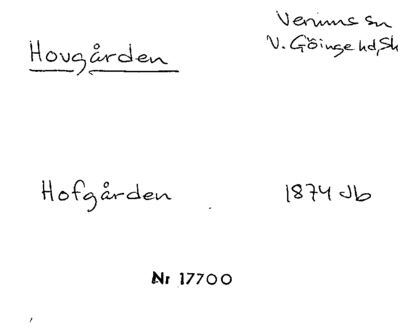 Verums sn
Hovgården
V. Göinge hd, Sk
Hofgården
1874 Jb
Nr 17700